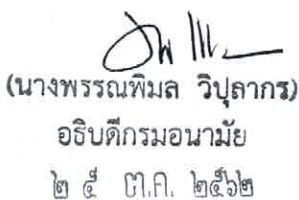 (นางพรรณพิมล วิปุลากร)
อธิบดีกรมอนามัย
๒ ๕ ต.ค. ๒๕๖๒